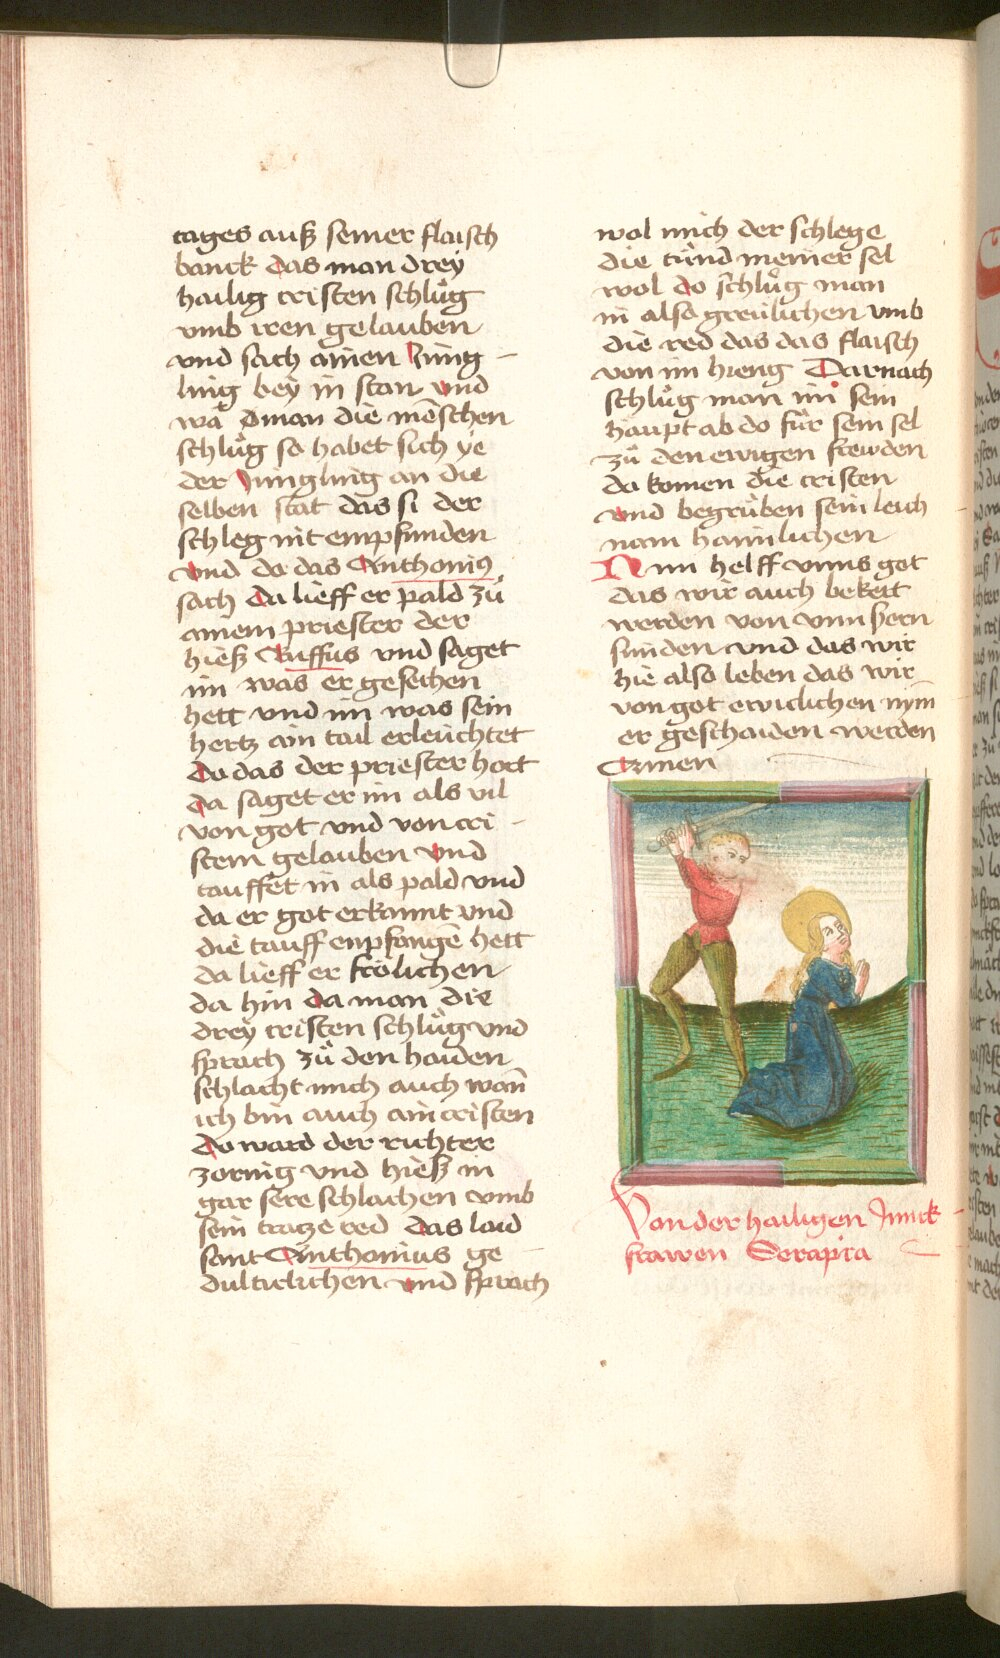 tages auß seiner flaisch
banck das man drey
hailig cristen schlůg
vmb iren gelauben
vnd sach ainen Jüng
ling bey in stan vnd
wā man die mēschen
schlůg so habet sich ye
der Jungling an die
selben stat das si der
schleg nit empfunden
vnd do das Anthonius
sach da lieff er pald zů
ainem priester der
hieß Ruffus vnd saget
im was er gesechen
hett vnd im was sein
hertz ain tail erleuchtet
Do das der priester hort
da saget er im als vil
von got vnd von cri
stem gelauben vnd
tauffet in als pald vnd
da er got erkannt vnd
die tauff enpfangē hett
da lieff er frölichen
da hin da man die
drey cristen schlůg vnd
sprach zů den haiden
schlacht mich auch wañ
ich bin auch ain cristen
Do ward der richter
zornig vnd hieß in
gar sere schlachen vmb
sein tratze red das laid
sant Anthonius ge
dulticlichen vnd sprach
wol mich der schlege
die tůnd meiner sel
wol do schlůg man
in also greulichen vmb
die red das das flaisch
von im hieng Darnach
schlůg man im sein
haupt ab do für sein sel
zů den ewigen frewden
da komen die cristen
vnd begrůben sein leich
nam haimlichen
Nun helff vnns got
das wir auch bekert
werden von vnnsern
sünden vnd das wir
hie also leben das wir
von got ewiclichen nym̄
er geschaiden werden
Amen
Von der hailigen Junck
frawen Serapia